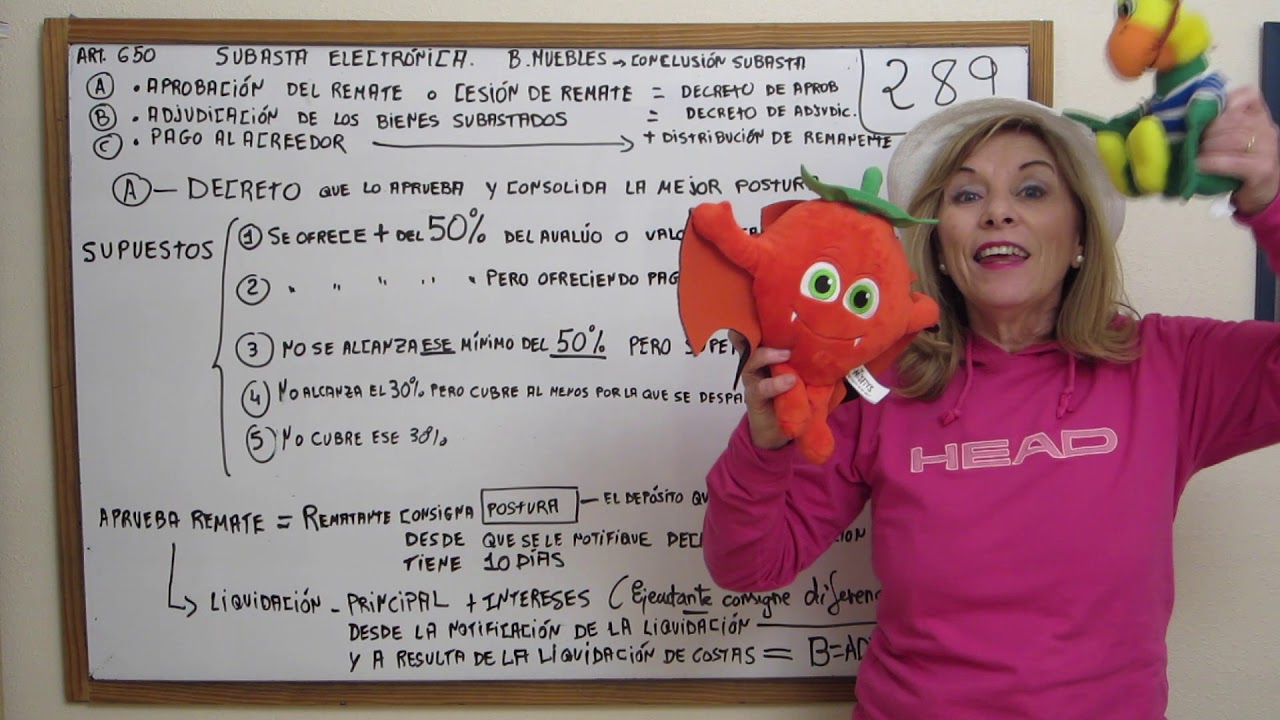 ART. 650 SUBASTA ELECTRÓNICA. B. MUEBLES → CONCLUSIÓN SUBASTA
289
Ⓐ • APROBACIÓN DEL REMATE O CESIÓN DE REMATE = DECRETO DE APROB
Ⓑ • ADJUDICACIÓN DE LOS BIENES SUBASTADOS = DECRETO DE ADJUDIC.
Ⓒ • PAGO AL ACREEDOR → + DISTRIBUCIÓN DE REMANENTE
Ⓐ — DECRETO QUE LO APRUEBA Y CONSOLIDA LA MEJOR POSTURA
SUPUESTOS
① SE OFRECE + DEL 50% DEL AVALÚO O
② " " " " " PERO OFRECIENDO
③ NO SE ALCANZA ESE MÍNIMO DEL 50% PERO
④ NO ALCANZA EL 30% PERO CUBRE AL MENOS POR LA QUE SE
⑤ NO CUBRE ESE 30%
APRUEBA REMATE = REMATANTE CONSIGNA POSTURA — EL DEPÓSITO
DESDE QUE SE LE NOTIFIQUE
TIENE 10 DÍAS
LIQUIDACIÓN - PRINCIPAL + INTERESES (Ejecutante consigne
DESDE LA NOTIFICACIÓN DE LA LIQUIDACIÓN
Y A RESULTA DE LA LIQUIDACIÓN DE COSTAS = B=
HEAD